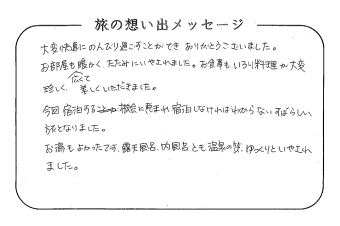 旅の想い出メッセージ
大変快適にのんびり過ごすことができ ありがとうございました。
お部屋も暖かく、たたみにいやされました。お食事もいろり料理が大変
広くて
珍しく、美しくいただきました。
今回宿泊する機会に恵まれ 宿泊しなければわからないすばらしい
旅となりました。
お湯もよかったです。露天風呂、内風呂とも温泉の質、ゆっくりといやされ
ました。